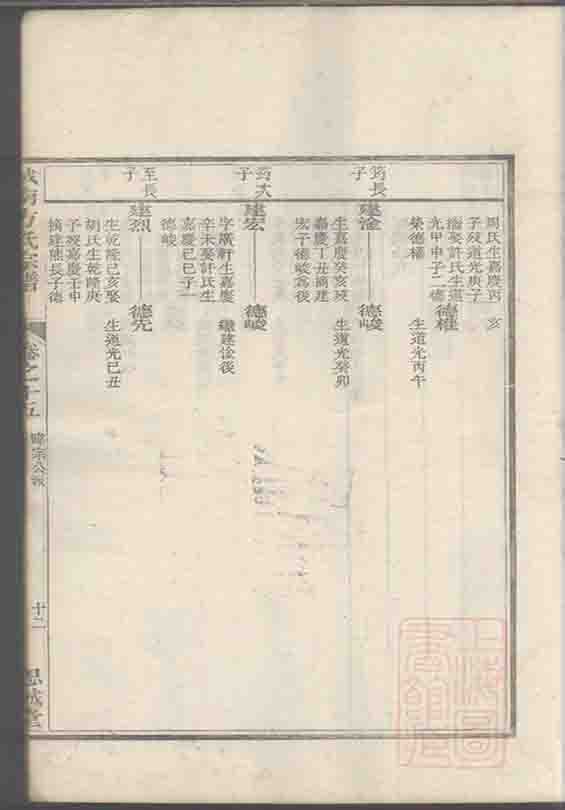 周氏生嘉慶丙
子歿道光庚子
繼娶許氏生道
光甲申子二德
榮德權
亥
德權
生道光丙午
筠長
子
建淦——德峻
生嘉慶癸亥歿
嘉慶丁丑商建
宏子德峻為後
生道光癸卯
筠次
子
建宏——德峻
字廣軒生嘉慶
辛未娶許氏生
嘉慶己巳子一
德峻
繼建淦後
至長
子
建烈——德先
生乾隆己亥娶
胡氏生乾隆庚
子歿嘉慶壬申
摘建熊長子德
生道光己丑
方氏宗譜
卷之十五
暐宗公派
十二
思誠堂
上海圖
書館藏